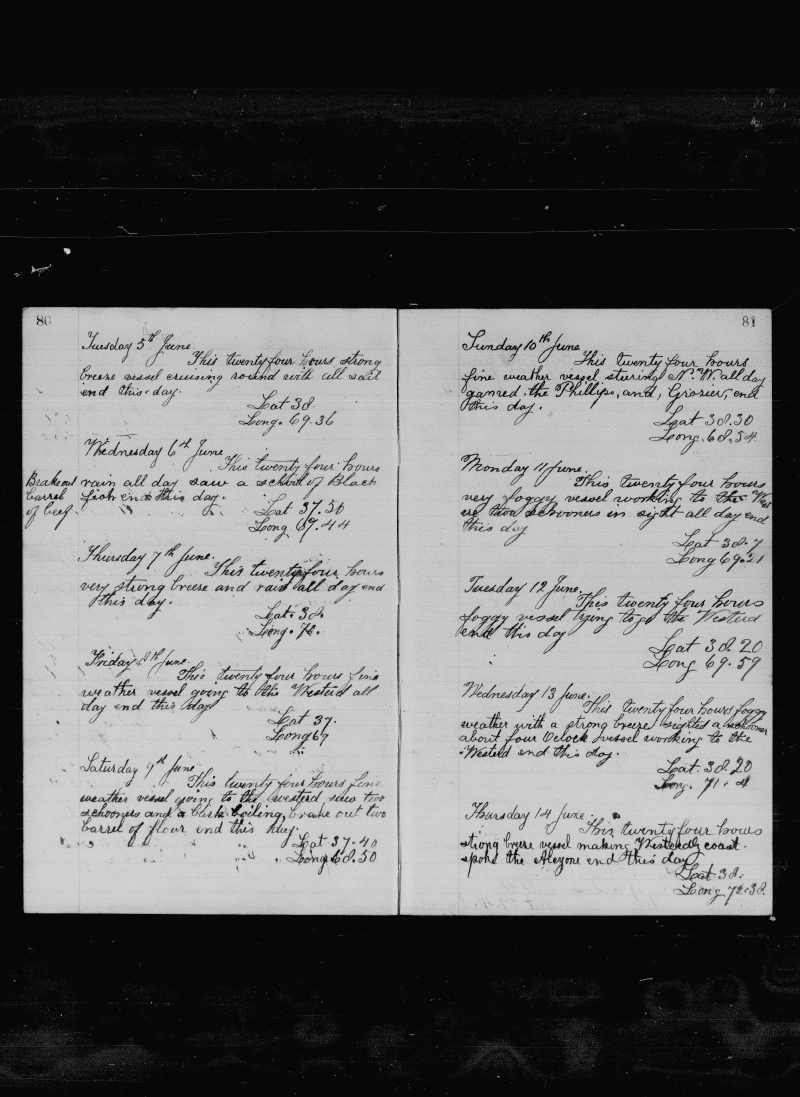 80
Tuesday 5th June
This twenty four hours strong
breeze vessel cruising round with all sail
end this day.
Lat 38
Long. 69.36
Wednesday 6th June
This twenty four hours
Brakeout rain all day saw a school of Black
barrel fish end this day.
of beef. Lat 37.50
Long 69.44
Thursday 7th June.
This twenty four hours
very strong breeze and rain all day end
this day.
Lat. 38.
Long. 70.
Friday 8th June
This twenty four hours fine
weather vessel going to the Westerd all
day end this day
Lat 37.
Long 69
Saturday 9th June
This twenty four hours fine
weather vessel going to the westerd saw two
schooners and a bark boiling, brake out two
barrel of flour end this day.
Lat 37.40
Long 68.50
81
Sunday 10th June
This twenty four hours
fine weather vessel steering N. W. all day
gamed the Phillips, and, Grosier, end
this day.
Lat 38.30
Long. 68.54
Monday 11 June.
This twenty four hours
very foggy vessel working to the West
two schooners in sight all day end
this day
Lat 38.7
Long 69.21
Tuesday 12 June.
This twenty four hours
foggy vessel trying to go the Westerd
end this day
Lat 38.20
Long 69.59
Wednesday 13 June.
This twenty four hours foggy
weather with a strong breeze sighted a schooner
about four Oclock vessel working to the
Westerd end this day.
Lat. 38.20
Long. 71.4
Thursday 14 June.
This twenty four hours
strong breeze vessel making Westerdly coast.
spoke the Alcyone end this day
Lat 38.
Long 72.38.